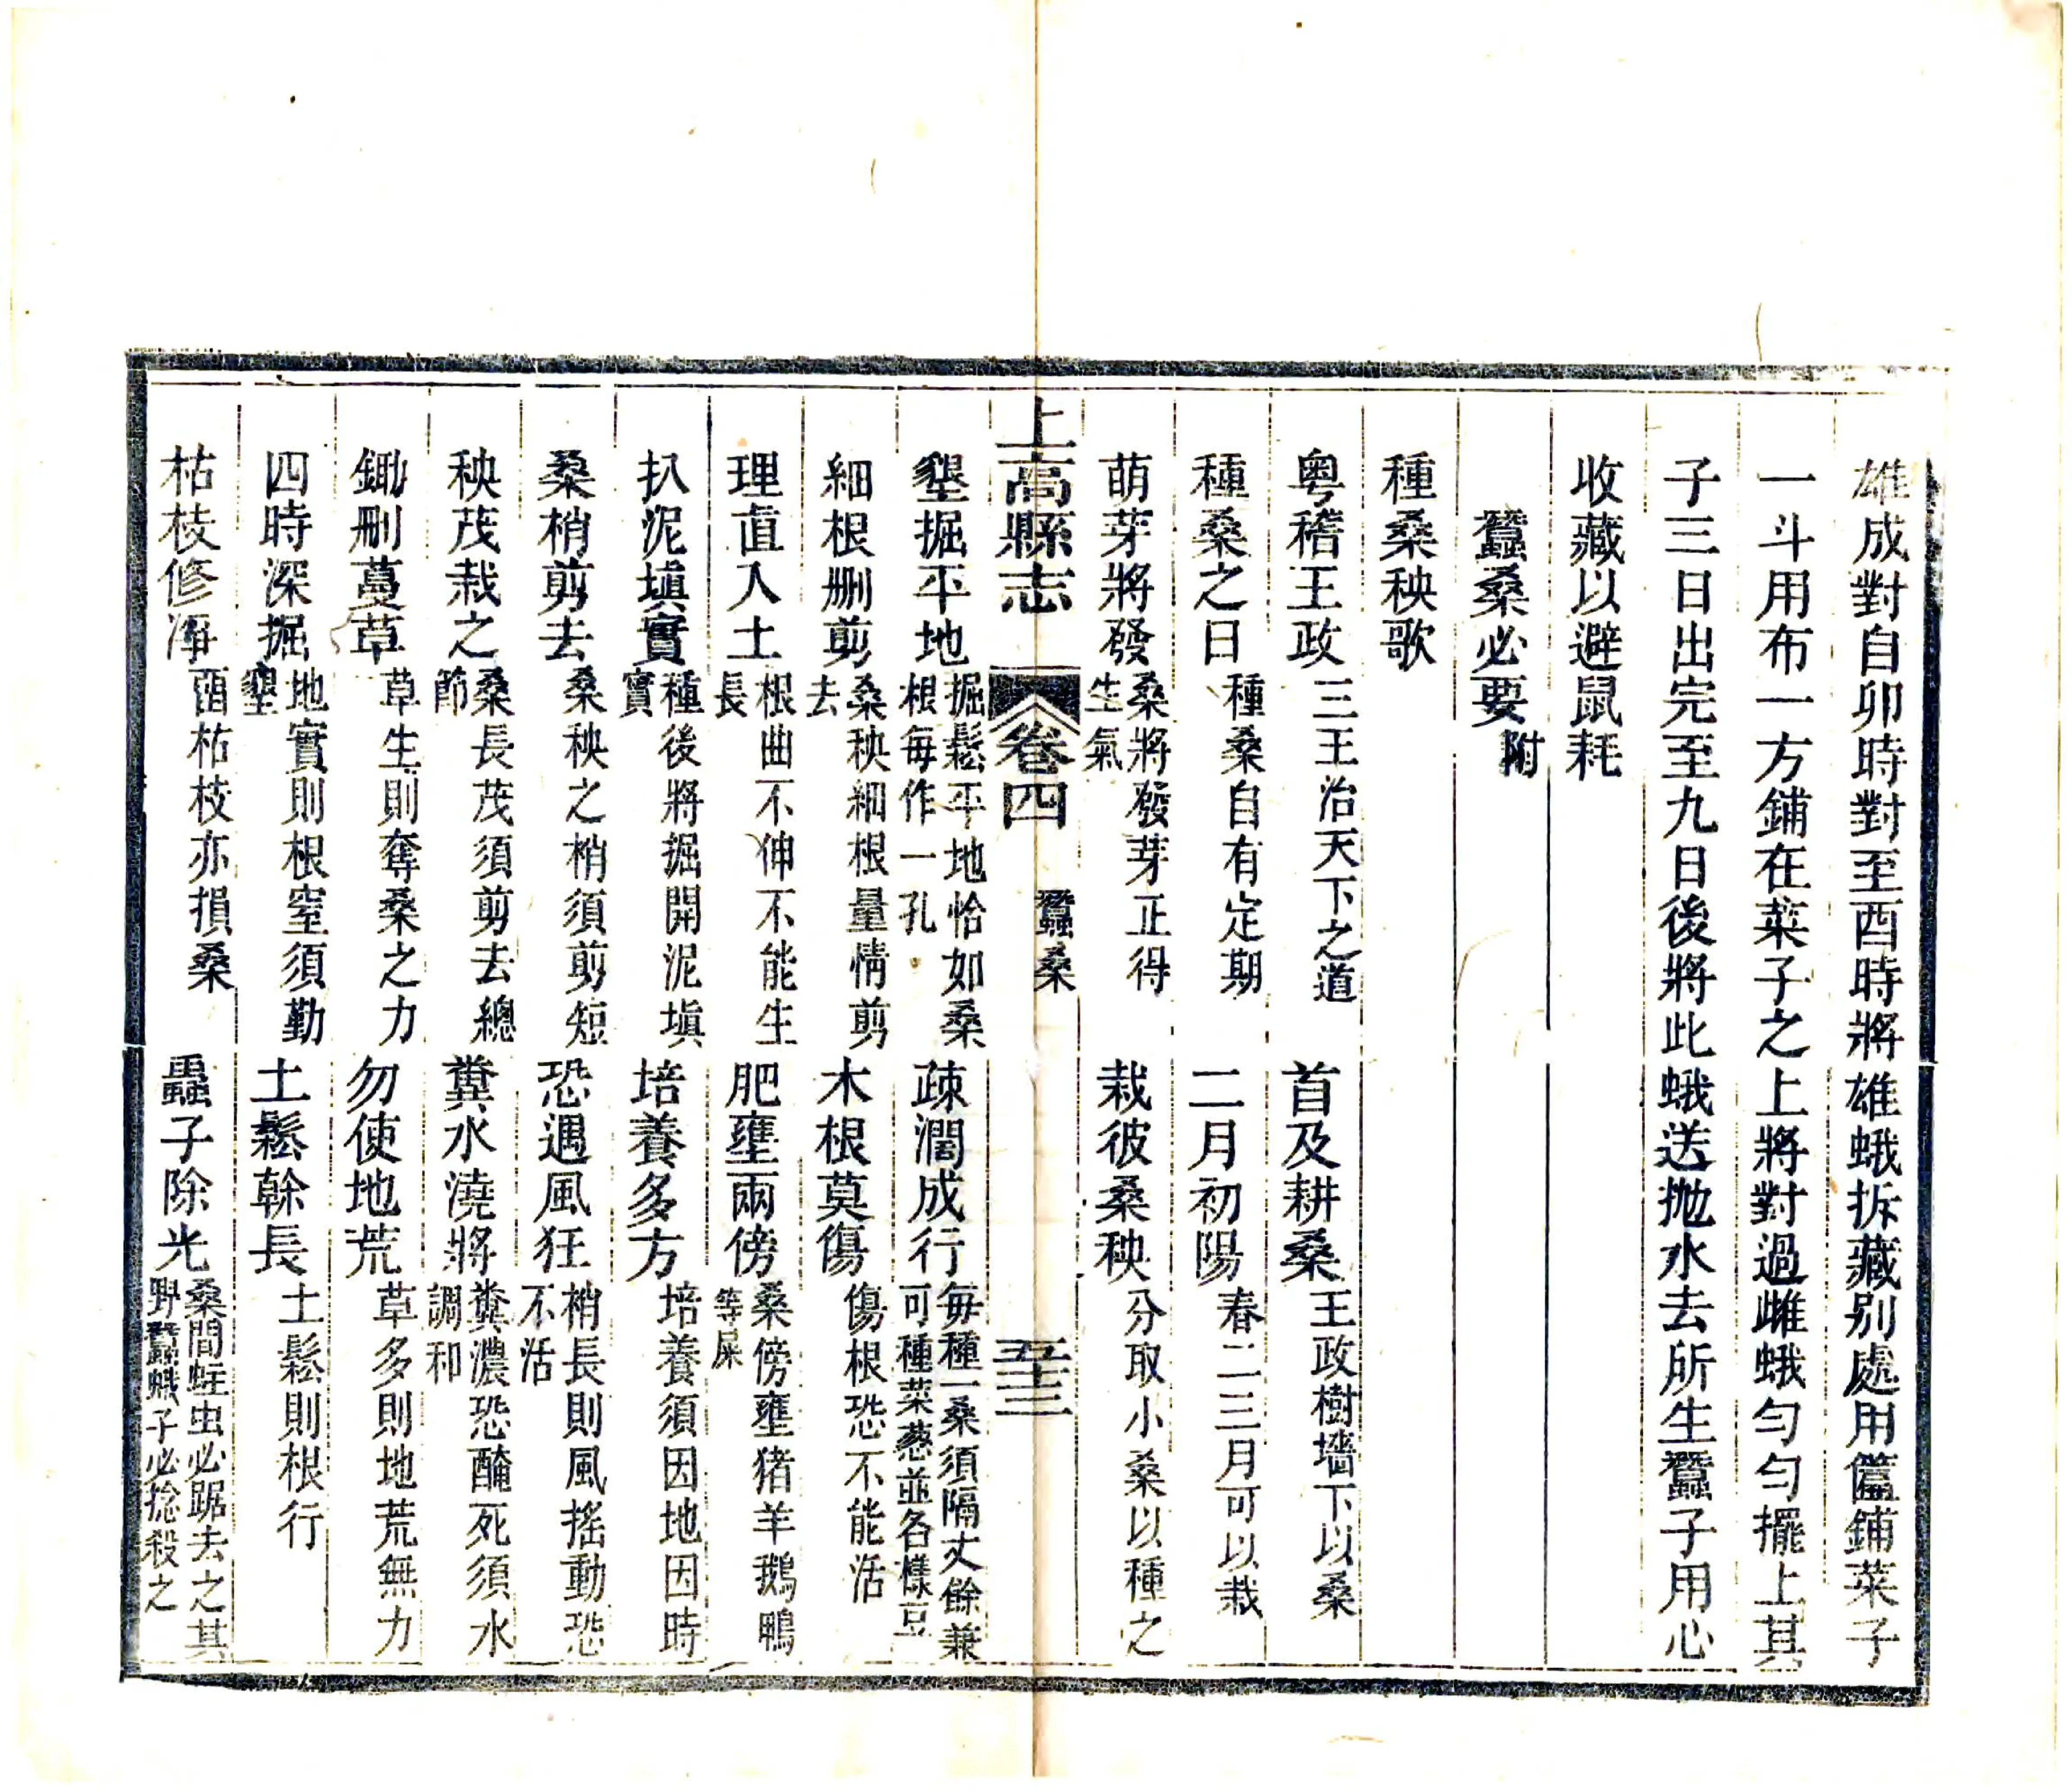 雄成對自卯時對至酉時將雄蛾拆藏别處用籃鋪菜子
一斗用布一方鋪在菜子之上將對過雌蛾勻勻擺上其
子三日出完至九日後將此蛾送抛水去所生蠶子用心
收藏以避鼠耗
蠶桑必要附
種桑秧歌
粤稽王政三王治天下之道首及耕桑王政樹墻下以桑
種桑之日種桑自有定期二月初陽春二三月可以栽
萌芽將發桑將發芽正得生氣栽彼桑秧分取小桑以種之
上高縣志卷四 蠶桑 五十三
墾掘平地掘鬆平地恰如桑根每作一孔疎濶成行每種一桑須隔丈餘兼可種菜葱並各樣豆
細根删剪桑秧細根量情剪去木根莫傷傷根恐不能活
理直入土根曲不伸不能生長肥壅兩傍桑傍壅猪羊鵝鴨等屎
扒泥塡實種後將掘開泥塡實培養多方培養須因地因時
桑梢剪去桑秧之梢須剪短恐遇風狂梢長則風搖動恐不活
秧茂栽之桑長茂須剪去總節糞水澆將糞濃恐醃死須水調和
鋤删蔓草草生則奪桑之力勿使地荒草多則地荒無力
四時深掘地實則根窒須勤墾土鬆榦長土鬆則根行
枯枝修凈留枯枝亦損桑蟲子除光桑間蛀虫必踞去之其野蠶蛾子必捻殺之